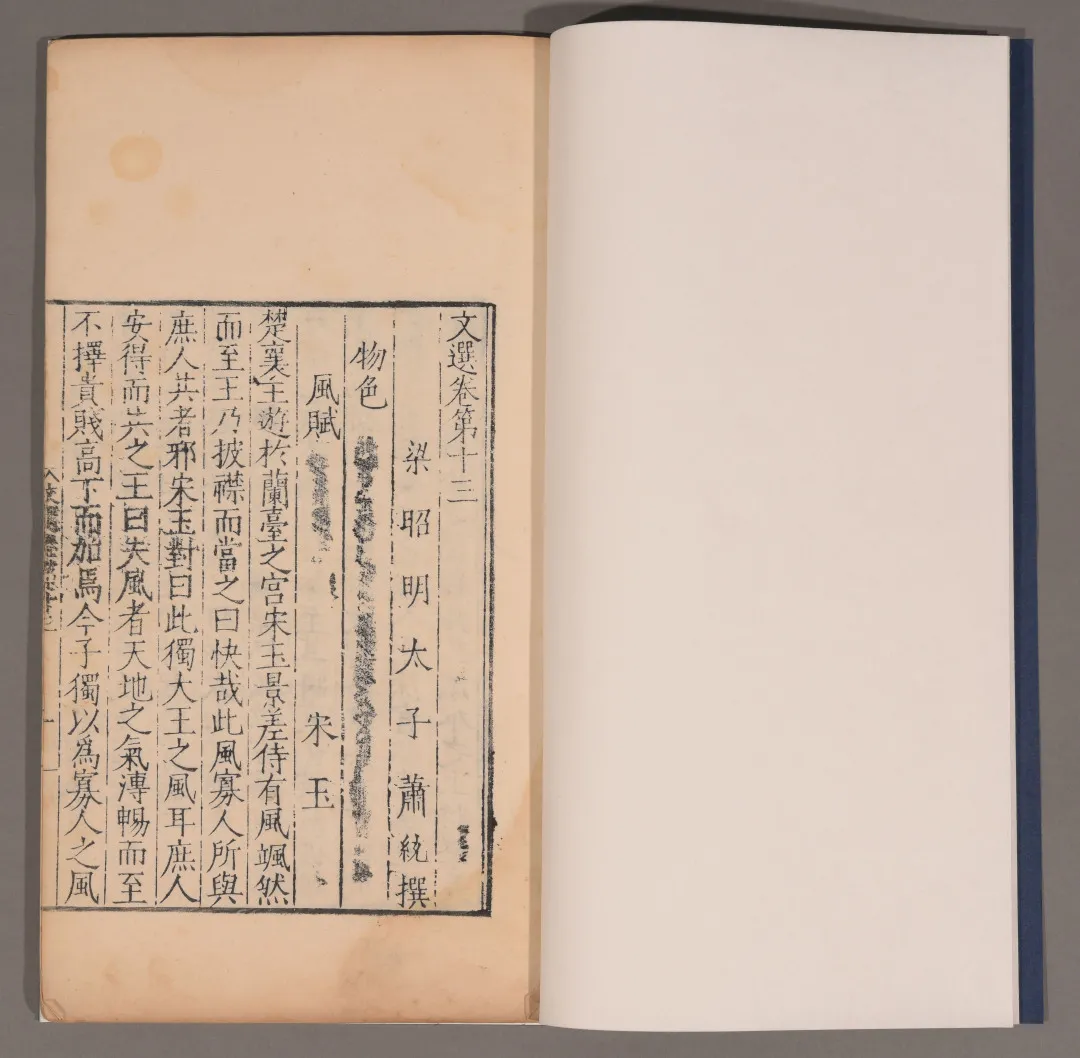 文選卷第十三
梁昭明太子蕭統撰
物色
風賦 宋玉
楚襄王遊於蘭臺之宮宋玉景差侍有風颯然
而至王乃披襟而當之曰快哉此風寡人所與
庶人共者邪宋玉對曰此獨大王之風耳庶人
安得而共之王曰夫風者天地之氣漙暢而至
不擇貴賤高下而加焉今子獨以爲寡人之風